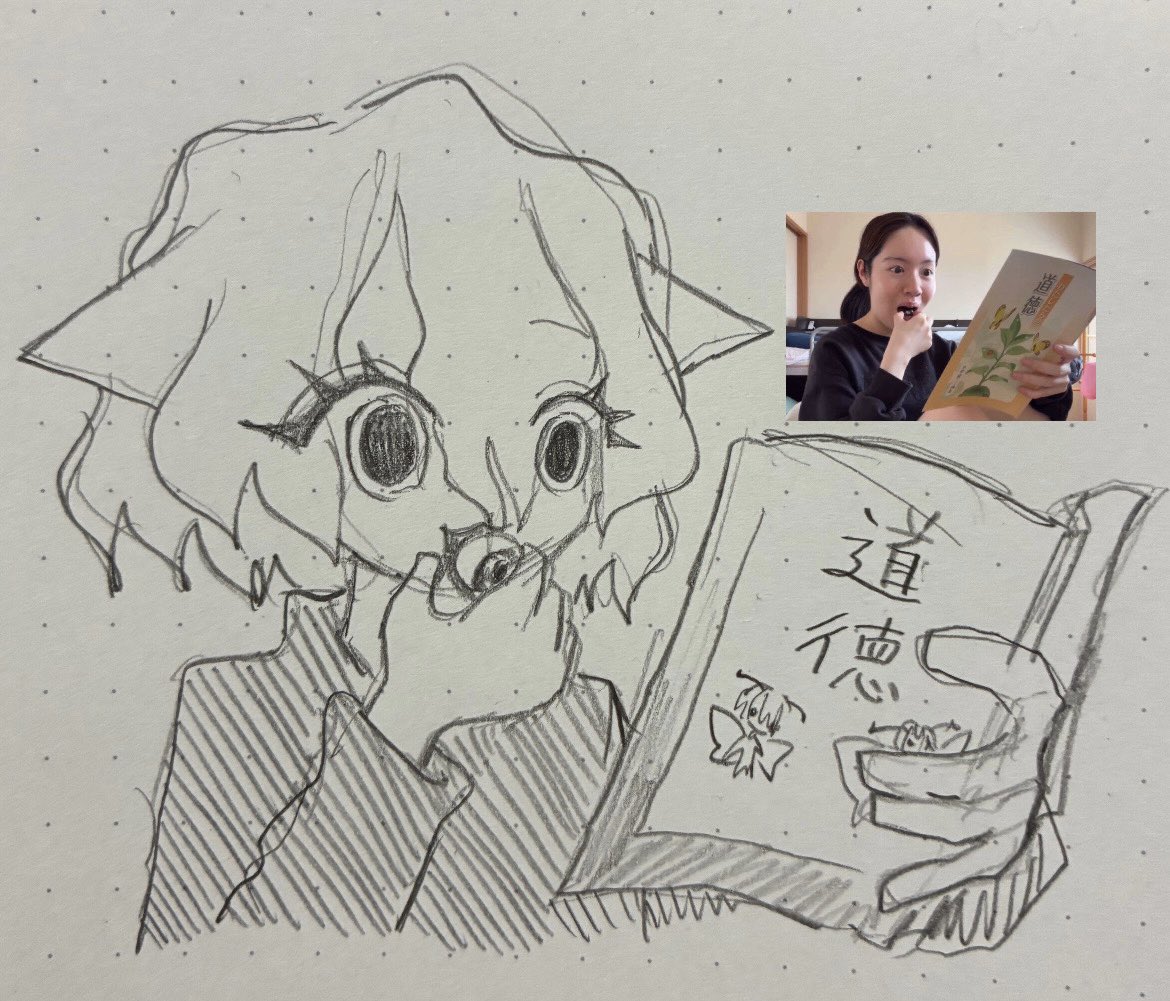 道徳
道徳